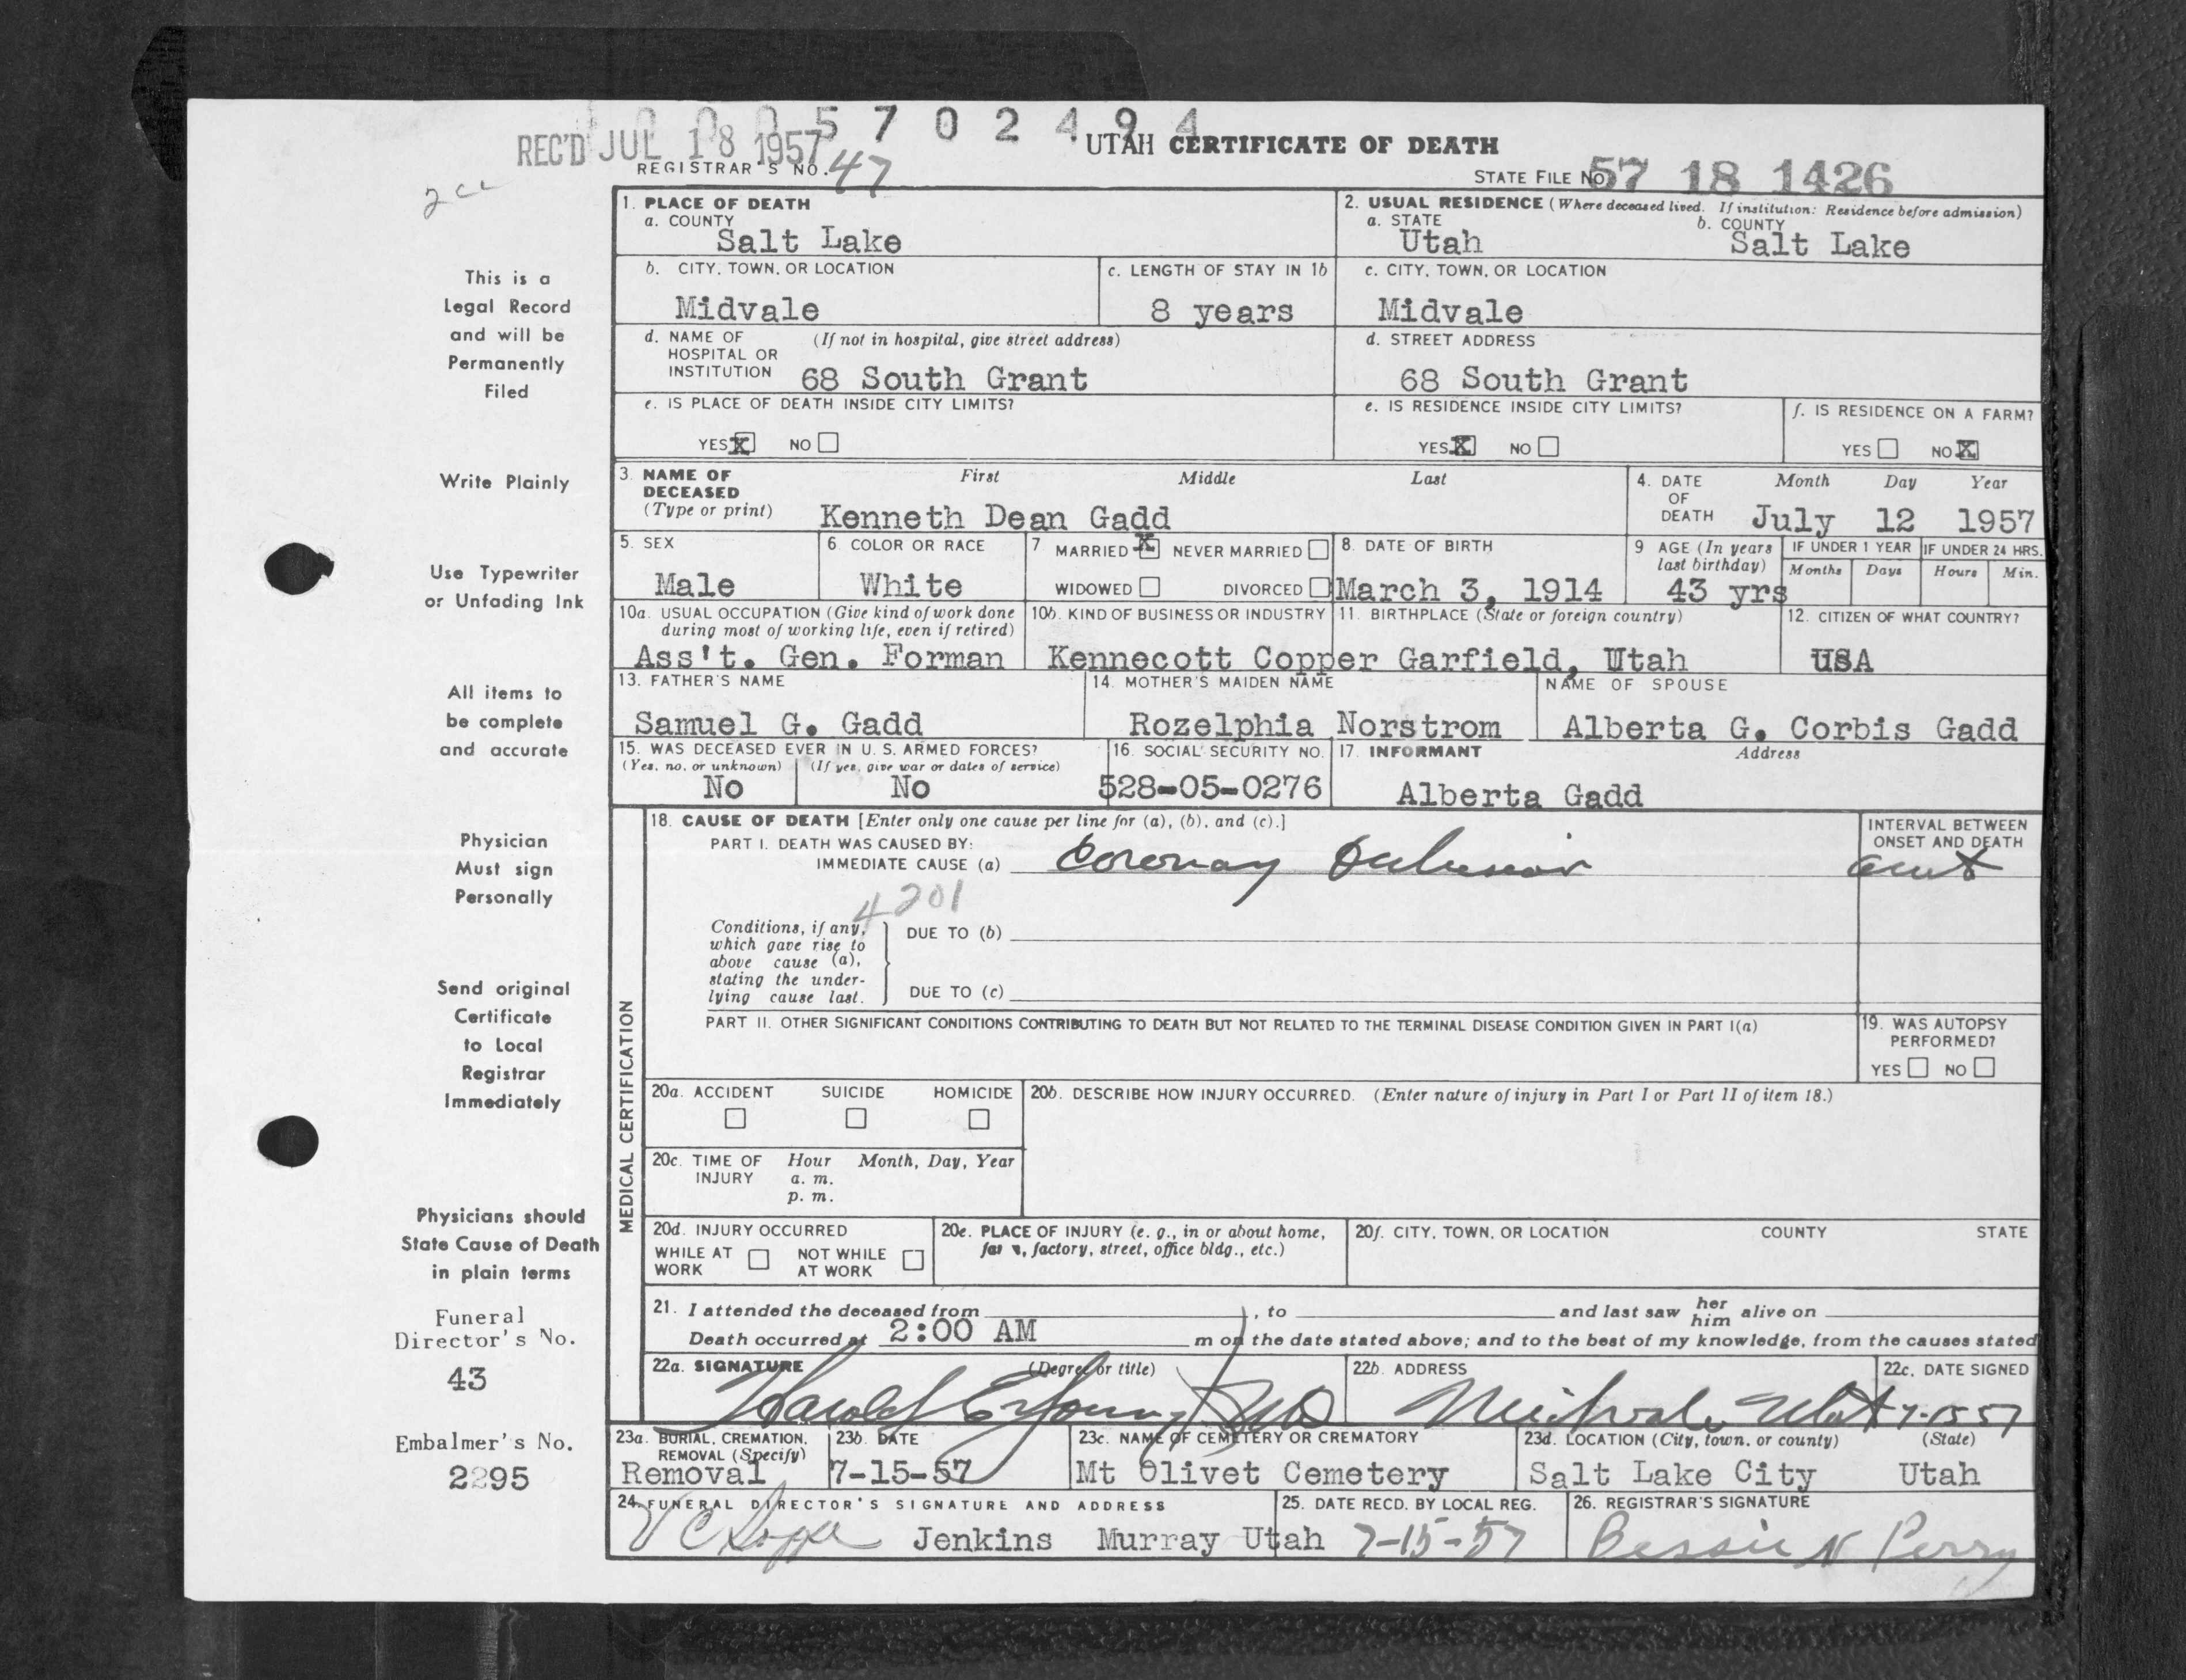 0005702494
REC'D JUL 18 1957
UTAH CERTIFICATE OF DEATH
REGISTRAR'S NO. 47
STATE FILE NO. 57 18 1426
1. PLACE OF DEATH
a. COUNTY
Salt Lake
2. USUAL RESIDENCE (Where deceased lived. If institution: Residence before admission)
a. STATE b. COUNTY
Utah Salt Lake
b. CITY, TOWN, OR LOCATION
Midvale
c. LENGTH OF STAY IN 1b
8 years
c. CITY, TOWN, OR LOCATION
Midvale
d. NAME OF (If not in hospital, give street address)
HOSPITAL OR
INSTITUTION 68 South Grant
d. STREET ADDRESS
68 South Grant
e. IS PLACE OF DEATH INSIDE CITY LIMITS?
YES X NO
e. IS RESIDENCE INSIDE CITY LIMITS?
YES X NO
f. IS RESIDENCE ON A FARM?
YES NO X
3. NAME OF First Middle Last
DECEASED
(Type or print) Kenneth Dean Gadd
4. DATE Month Day Year
OF
DEATH July 12 1957
5. SEX
Male
6 COLOR OR RACE
White
7 MARRIED X NEVER MARRIED
WIDOWED DIVORCED
8. DATE OF BIRTH
March 3, 1914
9 AGE (In years
last birthday)
43 yrs
IF UNDER 1 YEAR
Months Days
IF UNDER 24 HRS.
Hours Min.
10a. USUAL OCCUPATION (Give kind of work done
during most of working life, even if retired)
Ass't. Gen. Forman
10b. KIND OF BUSINESS OR INDUSTRY
Kennecott Copper
11. BIRTHPLACE (State or foreign country)
Garfield, Utah
12. CITIZEN OF WHAT COUNTRY?
USA
13. FATHER'S NAME
Samuel G. Gadd
14. MOTHER'S MAIDEN NAME
Rozelphia Norstrom
NAME OF SPOUSE
Alberta G. Corbis Gadd
15. WAS DECEASED EVER IN U. S. ARMED FORCES?
(Yes, no, or unknown) (If yes, give war or dates of service)
No No
16. SOCIAL SECURITY NO.
528-05-0276
17. INFORMANT Address
Alberta Gadd
MEDICAL CERTIFICATION
18. CAUSE OF DEATH [Enter only one cause per line for (a), (b), and (c).]
PART I. DEATH WAS CAUSED BY:
IMMEDIATE CAUSE (a)
INTERVAL BETWEEN
ONSET AND DEATH
4201
Conditions, if any,
which gave rise to
above cause (a),
stating the under-
lying cause last.
DUE TO (b)
DUE TO (c)
PART II. OTHER SIGNIFICANT CONDITIONS CONTRIBUTING TO DEATH BUT NOT RELATED TO THE TERMINAL DISEASE CONDITION GIVEN IN PART I(a)
19. WAS AUTOPSY
PERFORMED?
YES NO
20a. ACCIDENT SUICIDE HOMICIDE
20b. DESCRIBE HOW INJURY OCCURRED. (Enter nature of injury in Part I or Part II of item 18.)
20c. TIME OF Hour Month, Day, Year
INJURY a. m.
p. m.
20d. INJURY OCCURRED
WHILE AT NOT WHILE
WORK AT WORK
20e. PLACE OF INJURY (e. g., in or about home,
farm, factory, street, office bldg., etc.)
20f. CITY, TOWN, OR LOCATION COUNTY STATE
21. I attended the deceased from , to and last saw her him alive on
Death occurred at 2:00 AM m on the date stated above; and to the best of my knowledge, from the causes stated
22a. SIGNATURE (Degree or title)
Harold E Young MD
22b. ADDRESS
Midvale Utah
22c. DATE SIGNED
7-15 57
23a. BURIAL, CREMATION,
REMOVAL (Specify)
Removal
23b. DATE
7-15-57
23c. NAME OF CEMETERY OR CREMATORY
Mt Olivet Cemetery
23d. LOCATION (City, town, or county) (State)
Salt Lake City Utah
24. FUNERAL DIRECTOR'S SIGNATURE AND ADDRESS
Jenkins Murray Utah
25. DATE RECD. BY LOCAL REG.
7-15-57
26. REGISTRAR'S SIGNATURE
Bessie N Perry
This is a
Legal Record
and will be
Permanently
Filed
Write Plainly
Use Typewriter
or Unfading Ink
All items to
be complete
and accurate
Physician
Must sign
Personally
Send original
Certificate
to Local
Registrar
Immediately
Physicians should
State Cause of Death
in plain terms
Funeral
Director's No.
43
Embalmer's No.
2295